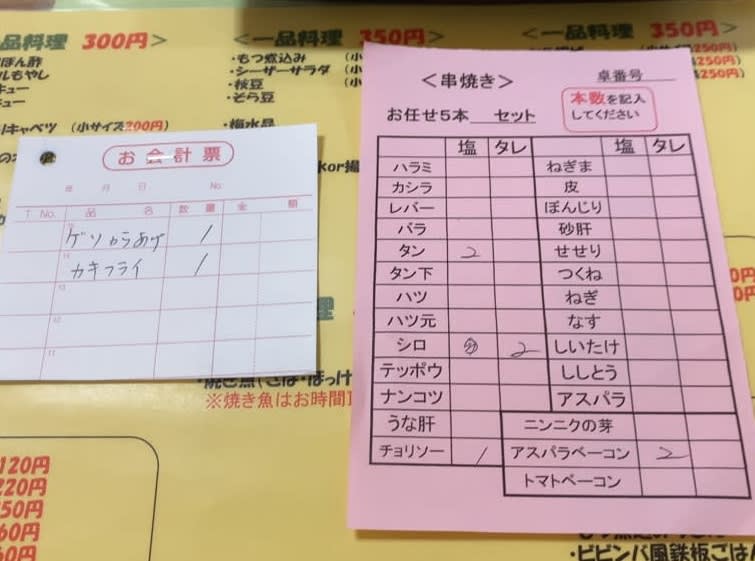 一品料理 300円>
<一品料理 350円>
350円>
ぽん酢
ルもやし
キュー
キュー
キャベツ (小サイズ200円)
・もつ煮込み (小
・シーザーサラダ (小
・枝豆
・そら豆
・梅水晶
250円)
250円)
250円)
お会計票
年 月 日 No.
T No. 品 名 数 量 金 額
ゲソからあげ 1
カキフライ 1
<串焼き> 卓番号
お任せ5本 セット
本数を記入
してください
塩 タレ 塩 タレ
ハラミ ねぎま
カシラ 皮
レバー ぼんじり
バラ 砂肝
タン 2 せせり
タン下 つくね
ハツ ねぎ
ハツ元 なす
シロ 2 しいたけ
テッポウ ししとう
ナンコツ アスパラ
うな肝 ニンニクの芽
チョリソー 1 アスパラベーコン 2
トマトベーコン
※焼き魚はお時間
120円
220円
50円
60円
60円
・ビビンバ風鉄板ごはん